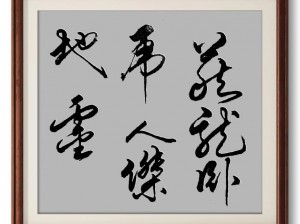 藏龍臥
虎人傑
地靈